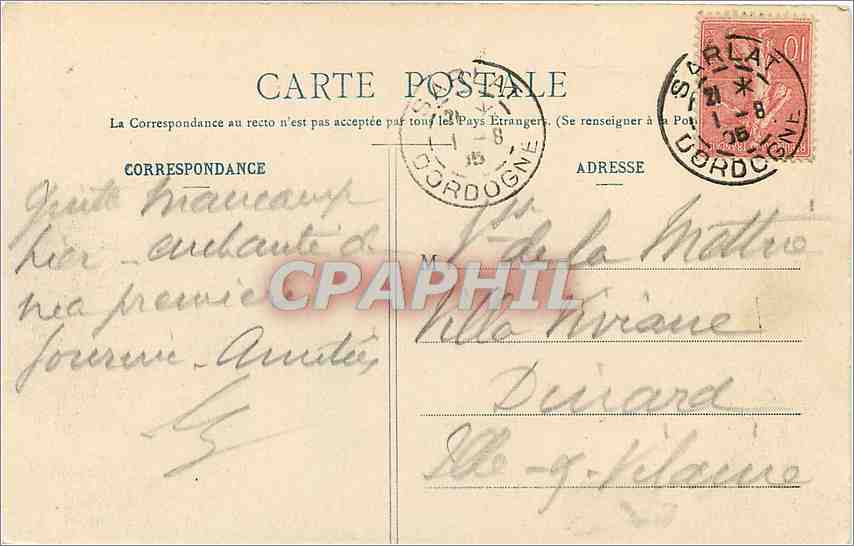 CARTE POSTALE
La Correspondance au recto n'est pas acceptée par tous les Pays Étrangers. (Se renseigner à la Pos
CORRESPONDANCE
ADRESSE
SARLAT
21 *
1 - 8
05
DORDOGNE
SARLAT
21 *
1 - 8
05
DORDOGNE
10
hier - enchanté de
ma première
journée - Amitiés
M
Vsse de la Mettrie
Villa Viviane
Dinard
Ille-et-Vilaine
CPAPHIL